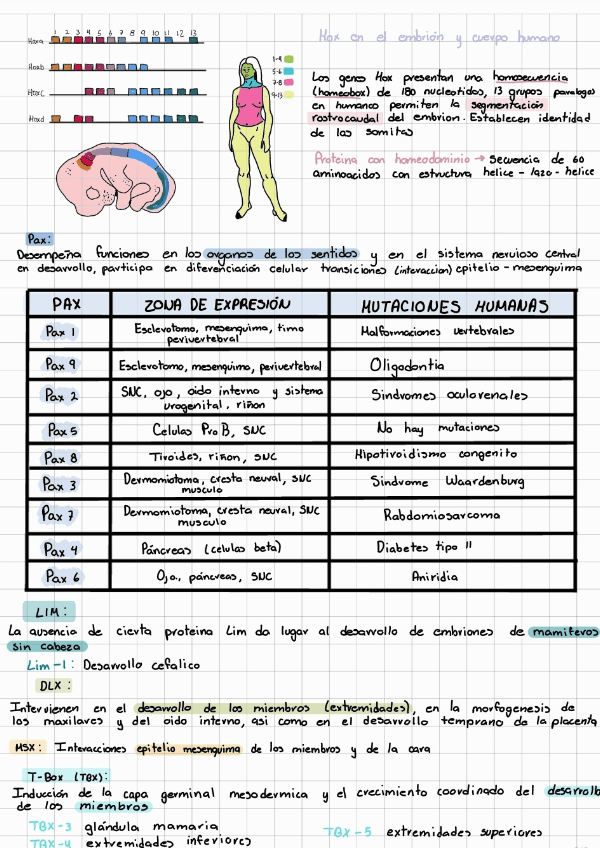 Hox en el embrión y cuerpo humano
1 2 3 4 5 6 7 8 9 10 11 12 13
Hoxa
Hoxb
HoxC
Hoxd
1-4
5-6
7-8
9-13
Los genes Hox presentan una homosecuencia
(homeobox) de 180 nucleotidos, 13 grupos paralogos
en humanos permiten la segmentación
rostrocaudal del embrion. Establecen identidad
de las somitas
Proteina con homeodominio → Secuencia de 60
aminoacidos con estructura helice - lazo - helice
Pax:
Desempeña funciones en los organos de los sentidos y en el sistema nervioso central
en desarrollo, participa en diferenciación celular transiciones (interaccion) epitelio - mesenquima
PAX ZONA DE EXPRESIÓN MUTACIONES HUMANAS
Pax 1 Esclerotomo, mesenquima, timo Malformaciones vertebrales
perivertebral
Pax 9 Esclerotomo, mesenquima, perivertebral Oligodontia
Pax 2 SNC, ojo, oido interno y sistema Sindromes oculorenales
urogenital, riñon
Pax 5 Celulas Pro B, SNC No hay mutaciones
Pax 8 Tiroides, riñon, SNC Hipotiroidismo congenito
Pax 3 Dermomiotoma, cresta neural, SNC Sindrome Waardenburg
musculo
Pax 7 Dermomiotoma, cresta neural, SNC Rabdomiosarcoma
musculo
Pax 4 Páncreas (celulas beta) Diabetes tipo II
Pax 6 Ojo, páncreas, SNC Aniridia
LIM:
La ausencia de cierta proteina Lim da lugar al desarrollo de embriones de mamiferos
sin cabeza
Lim-1: Desarrollo cefalico
DLX:
Intervienen en el desarrollo de los miembros (extremidades), en la morfogenesis de
los maxilares y del oido interno, asi como en el desarrollo temprano de la placenta
MSX: Interacciones epitelio mesenquima de los miembros y de la cara
T-Box (TBX):
Inducción de la capa germinal mesodermica y el crecimiento coordinado del desarrollo
de los miembros
TBX-3 glándula mamaria TBX-5 extremidades superiores
TBX-4 extremidades inferiores